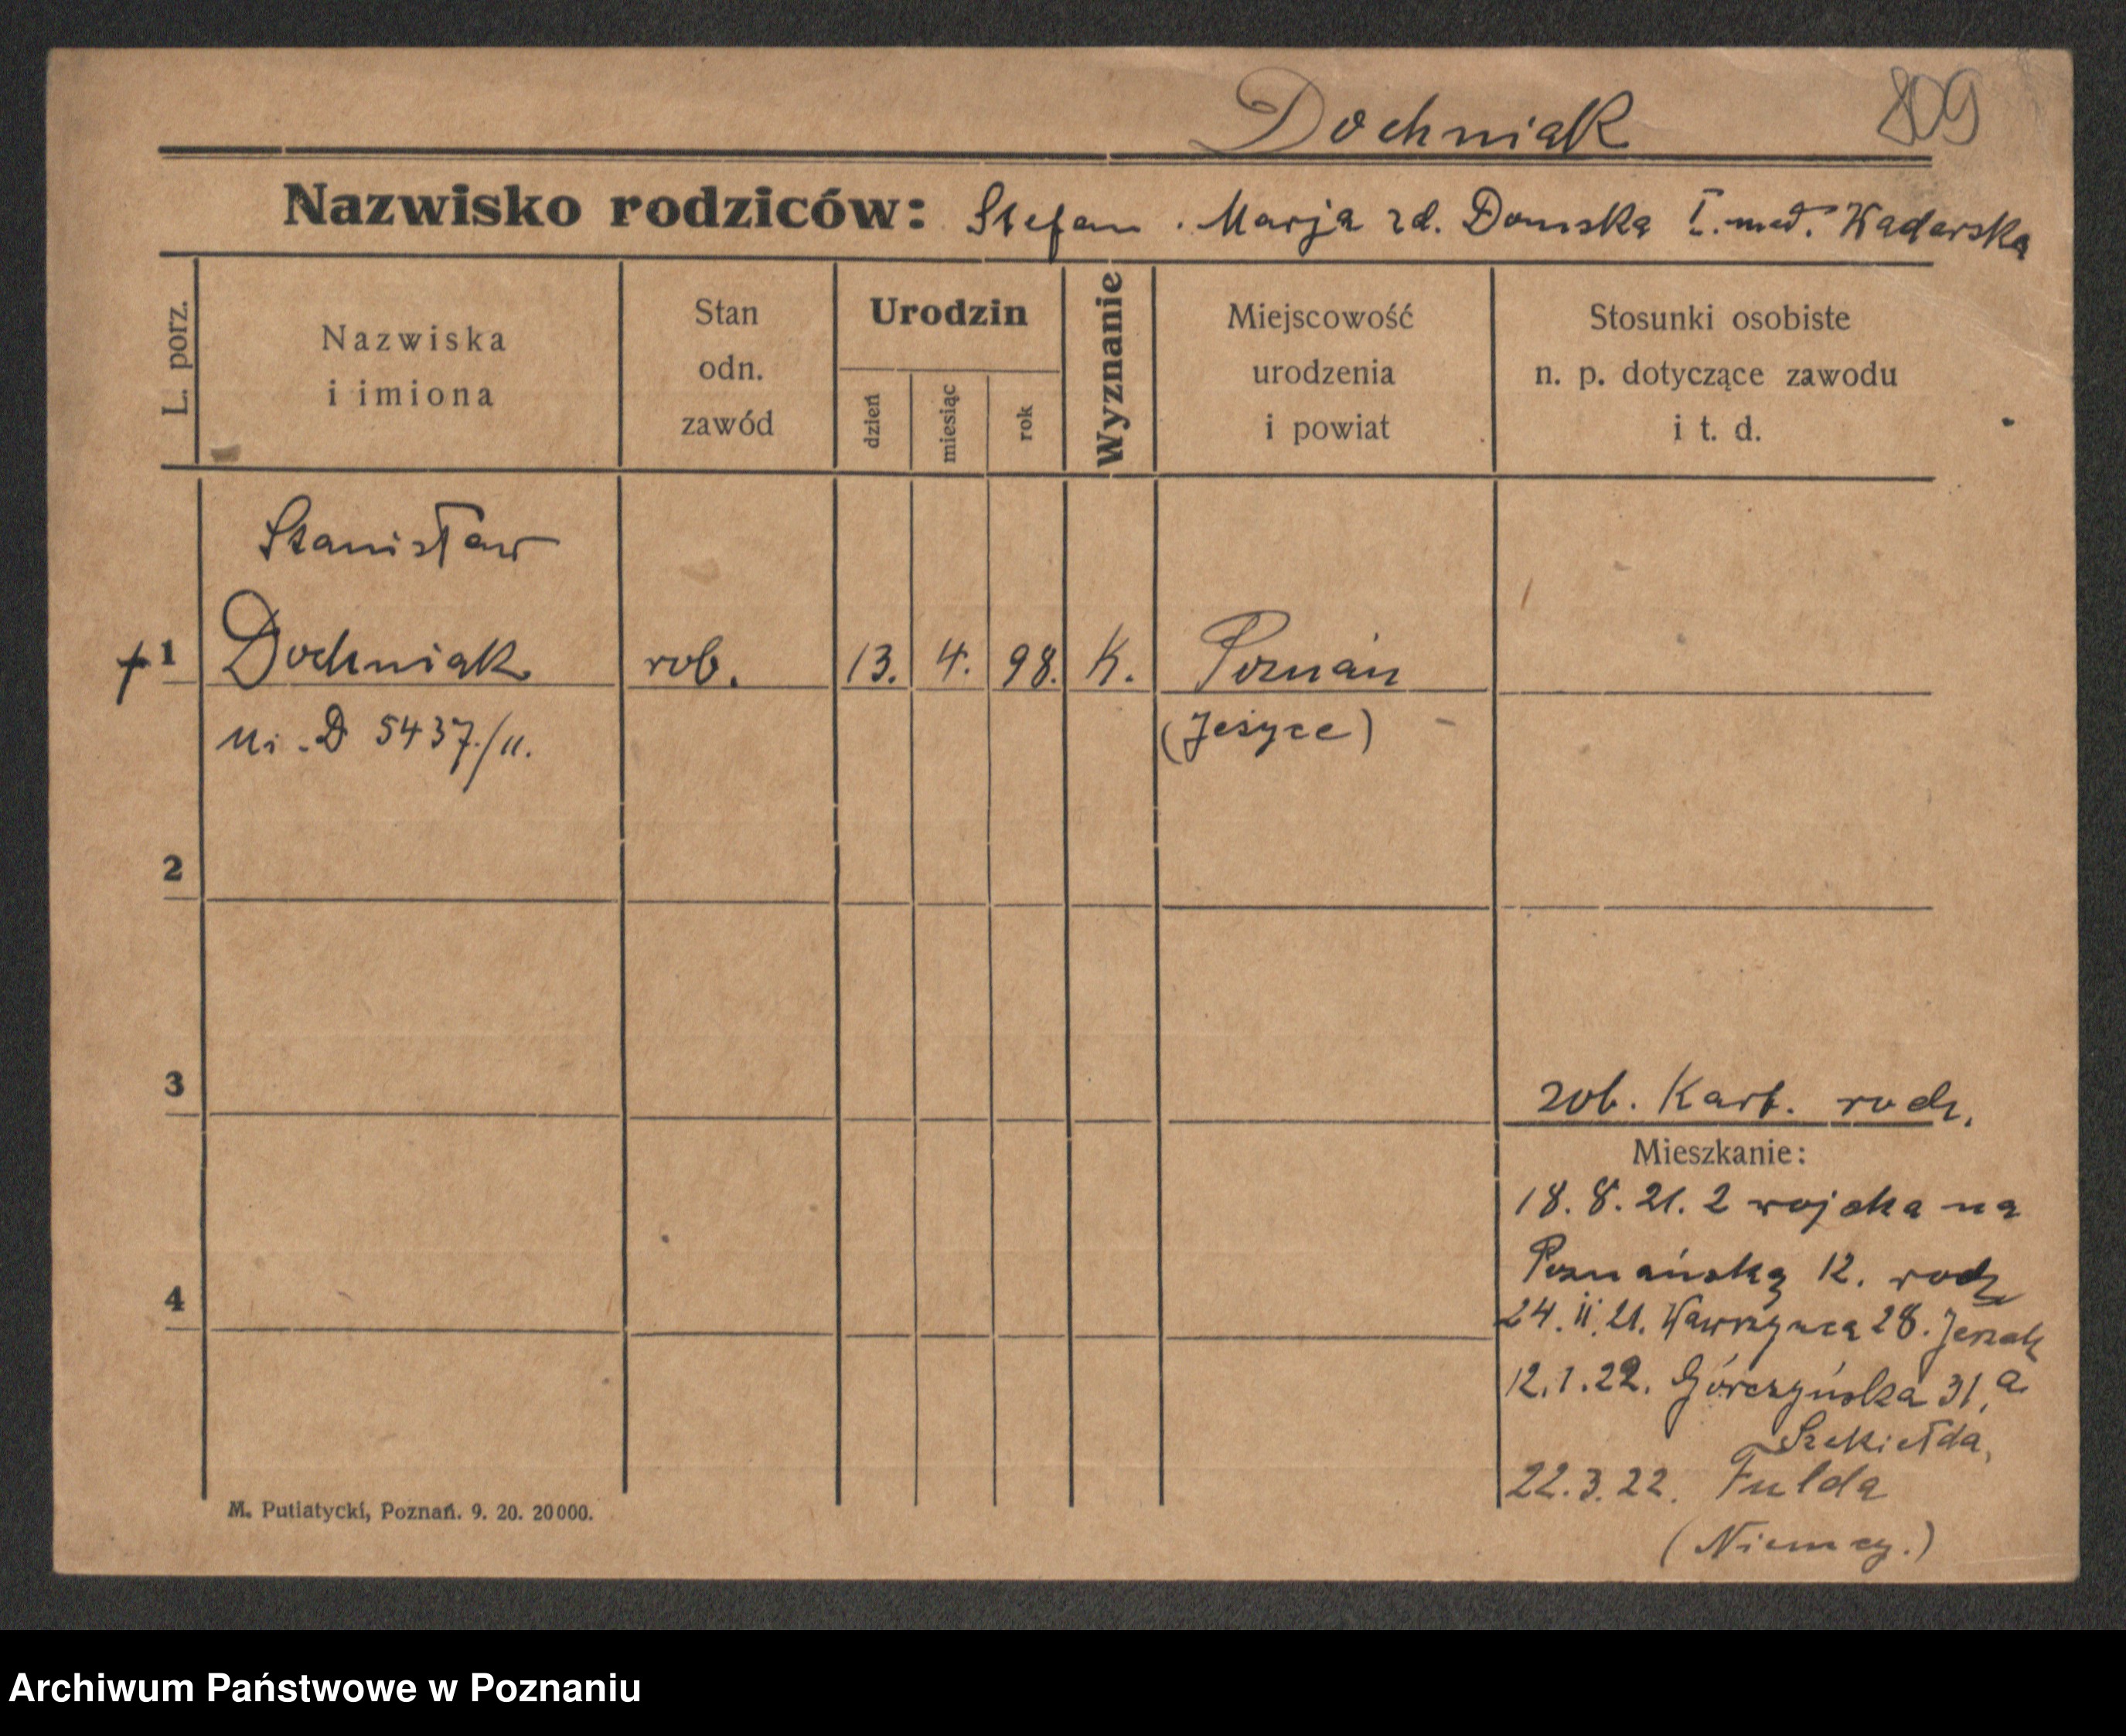 Dochniak 809
Nazwisko rodziców: Stefan. Marja zd. Domska I. męż. Wadarska
L. porz.
Nazwiska
i imiona
Stan
odn.
zawód
Urodzin
dzień
miesiąc
rok
Wyznanie
Miejscowość
urodzenia
i powiat
Stosunki osobiste
n. p. dotyczące zawodu
i t. d.
Stanisław
1 Dochniak rob. 13. 4. 98. K. Poznań
D 5437/II. (Jeżyce)
2
3
zob. Kart. rodz.
Mieszkanie:
18. 8. 21. z wojska na
Poznańską 12. rodz
4
24. 11. 21. Wawrzyńca 28.
12. 1. 22. Górczyńska 31, a
Szekiełda,
22. 3. 22. Fulda
(Niemcy.)
M. Putiatycki, Poznań. 9. 20. 20000.
Archiwum Państwowe w Poznaniu